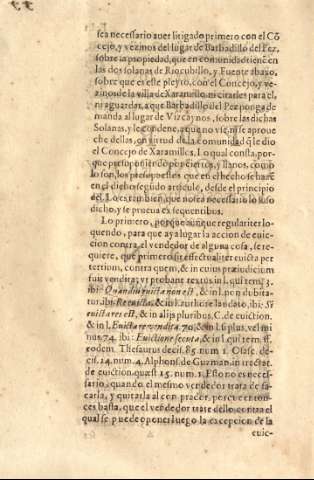 sea necessario auer litigado primero con el Cõ
cejo, y vezinos del lugar de Barbadillo del Pez,
sobre la propiedad, que en comunidad tiene en
las dos solanas de Riocubillo, y Fuente abaxo,
sobre que es este pleyto, con el Concejo, y ve-
zinos de la villa de Xaramillo, ni citarles para el,
ni aguardar, a que Barbadillo del Pez ponga de
manda al lugar de Vizcaynos, sobre las dichas
Solanas, y le condene, a que no vse, ni se aproue
che dellas, en virtud de la comunidad q̃ le dio
el Concejo de Xaramillo. Lo qual consta, por-
que presuponiendo por ciertos, y llanos, como
lo son, los presupuestos que en el hecho se harẽ
en el dicho segundo articulo, desde el principio
del. Lo es tambien, que no sea necessario lo suso
dicho, y se prueua ex sequentibus.
Lo primero, porque aunque regulariter lo-
quendo, para que aya lugar la accion de euic-
cion contra el vendedor de alguna cosa, se re-
quiere, que primero sit effectualiter euicta per
tertium, contra quem, & in cuius præiudicium
fuit vendita; vt probant textus in l. qui rem 3.
ibi: Quandiu euicta non est, & in l. non dubita-
tur, ibi: Re euicta, & in l. auctore laudato, ibi: Si
euicta res est, & in alijs pluribus, C. de euiction.
& in l. Euicta re vendita. 70. & in l. si plus, vel mi
nus 74. ibi: Euictione secuta, & in l. qui rem ff.
eodem. Thesaurus decis. 85. num 1. Osasc. de-
cis. 24. num. 4. Alphons. de Guzman, in tractat.
de euiction. quæst 15. num. 1. Esto no es neces-
sario, quando el mesmo vendedor trata de sa-
carla, y quitarla al comprador, porque enton-
ces basta, que el vendedor trate dello, contra el
qual se puede oponer luego la excepcion de la
euic-